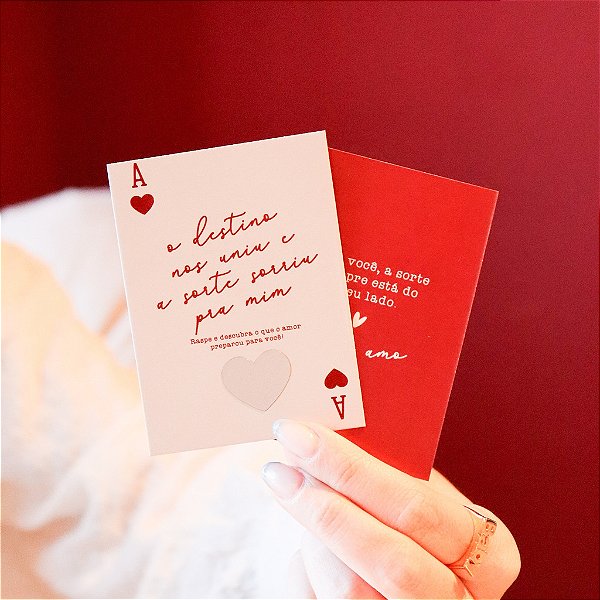 A
o destino
nos uniu e
a sorte sorriu
pra mim
Raspe e descubra o que o amor
preparou para você!
A
você, a sorte
pre está do
eu lado.
amo